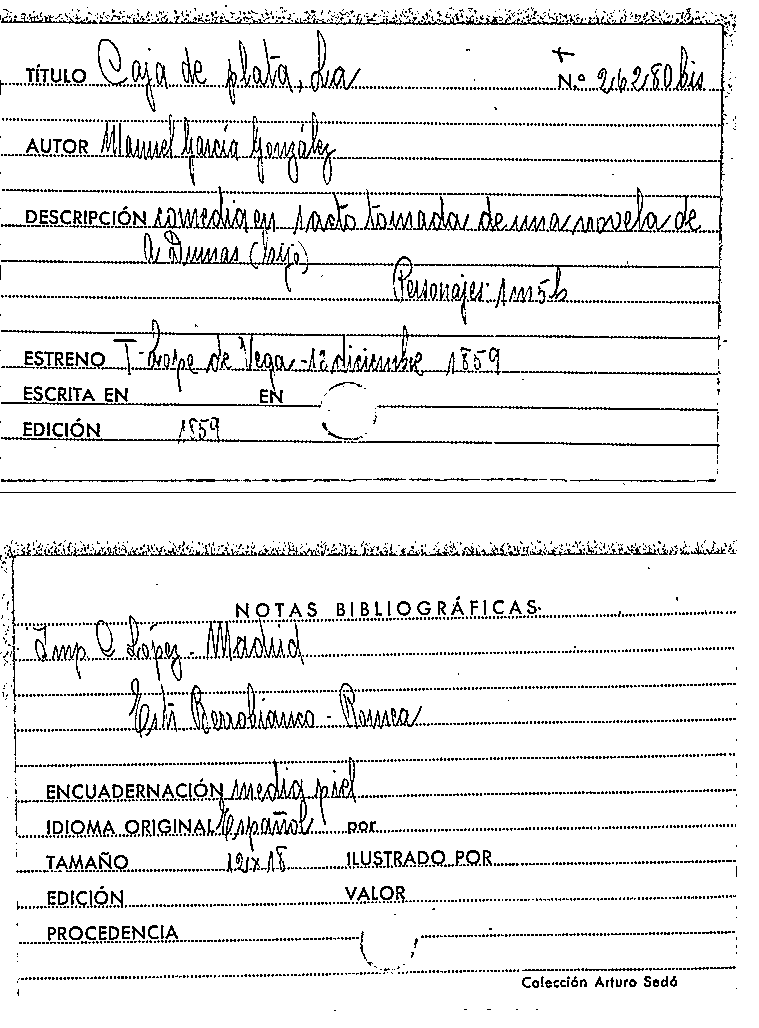 TÍTULO Caja de plata, La N.º 26280 bis
AUTOR Manuel García González
DESCRIPCIÓN comedia en 1 acto tomada de una novela de
A Dumas (hijo)
Personajes: 1m 5h
ESTRENO T- Lope de Vega - 12 diciembre 1859
ESCRITA EN EN
EDICIÓN 1859
NOTAS BIBLIOGRÁFICAS
Imp C López - Madrid
Estr Berrobianco - Romea
ENCUADERNACIÓN media piel
IDIOMA ORIGINAL Español por
TAMAÑO 12x18 ILUSTRADO POR
EDICIÓN VALOR
PROCEDENCIA
Colección Arturo Sedó